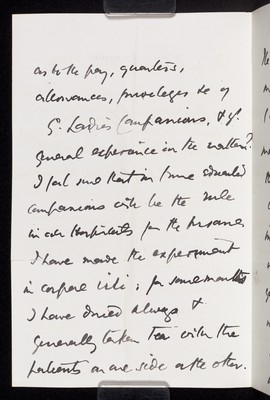 as to the pay, quarters,
allowances, privileges &c of
yr. Ladies Companions, & yr.
general experience in the matter?
I feel sure that in time educated
companions will be the rule
in our Hospitals for the Insane
I have made the experiment
in corpore vili; for some months
I have dined always &
generally taken tea with the
patients on one side or the other.